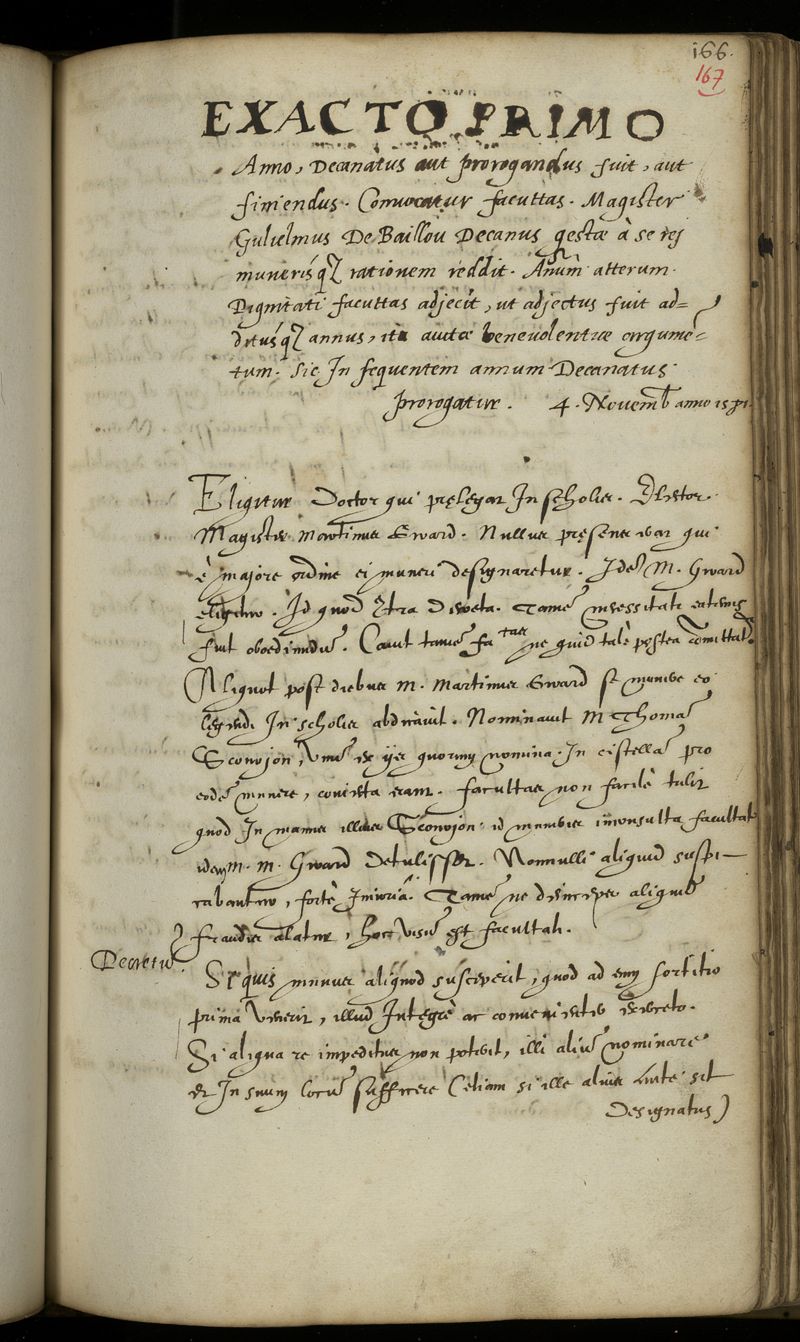 166.
167
EXACTO PRIMO
Anno, Decanatus aut prorogandus fuit, aut
finiendus. Convocatur facultas. Magister
Gulielmus De Baillou Decanus gestæ à se rej
munerisq3 rationem reddit. Annum alterum
Dignitati facultas adjecit, ut adjectus fuit ad=
ditusq3 annus, ita auctæ benevolentiæ argumē=
tum. Sic In sequentem annum Decanatus
prorogatur. 4. Novemb anno
Eligitur Doctor qui prelegat In scholis. Elector
Magister Martinus Gward. Nullus presens erat qui
è majore ordine ei muneri designaretur. Idē M. Gward
eligitur. Id quod cōtra Decreta. Tamē necessitati
fuit obœdiendū. Cavit tamē fa^tas ne quid talè postea cōmittat.
Aliquot post diebus M. Martinus Gward se munere eo
legendi In scholis abdicavit. Nominavit M Thomā
Sconojon, Unū ex ijs quorum nomina In cistellā pro
eodē munere, conjecta erant. facultas non facilè tulit
quod In manus illius Sconojon id muneris inconsulta facultate
idem M. M. Gward detulisset. Nonnulli aliquid suspi—
cabantur, fortè Injuriā. Tamē ne deinceps aliquid
fraudis alatur, hoc visū est facultati.
Decretū.
Si quis munus aliquod susceperit, quod ad eum sortitio
prima venerit, illud Integrè ac convenienter exerceto.
Si aliqua re impeditus non poterit, illi aliū nominare
et In suum locū sufficere Cetiam si ille alius antè sit
Designatus)